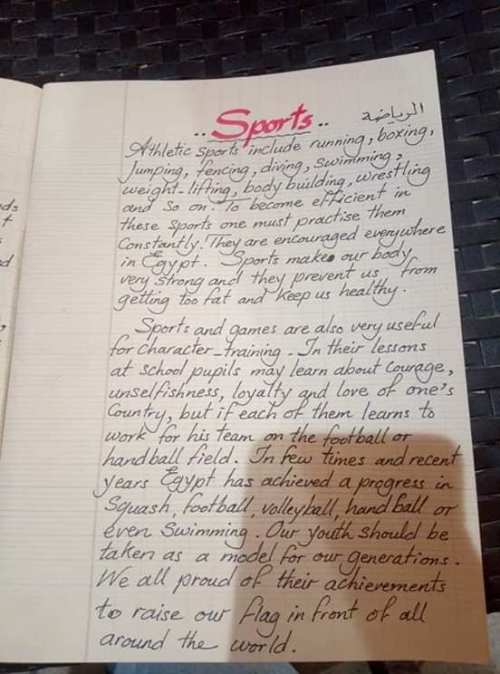 .. Sports .. الرياضة
Athletic sports include running, boxing,
Jumping, fencing, diving, swimming,
weight-lifting, body building, wrestling
and so on. To become efficient in
these sports one must practise them
Constantly. They are encouraged everywhere
in Egypt. Sports make our body
very strong and they prevent us from
getting too fat and keep us healthy.
Sports and games are also very useful
for character-training. In their lessons
at school pupils may learn about courage,
unselfishness, loyalty and love of one's
Country, but if each of them learns to
work for his team on the football or
handball field. In few times and recent
years Egypt has achieved a progress in
Squash, football, volleyball, hand ball or
even Swimming. Our youth should be
taken as a model for our generations.
We all proud of their achievements
to raise our flag in front of all
around the world.